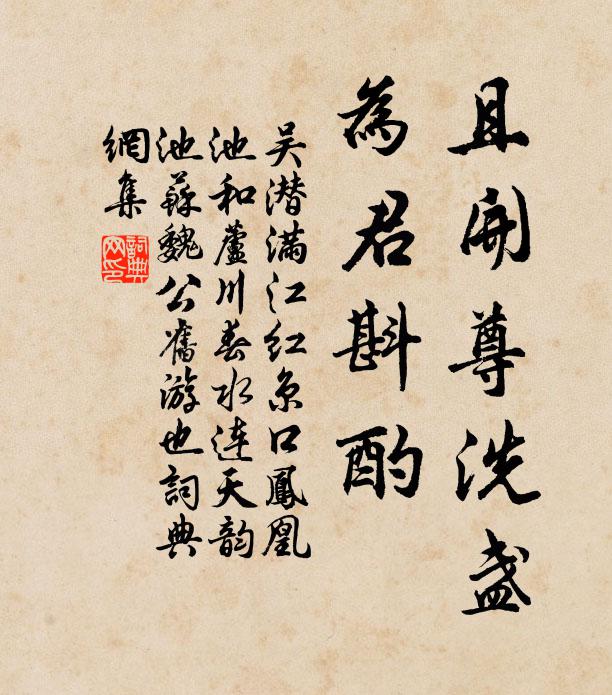 且開尊洗盞
為君斟酌
吴潜满江红京口鳳凰
池和蘆川春水連天韵
池蘇魏公舊游也詞典
網集
詞典網印